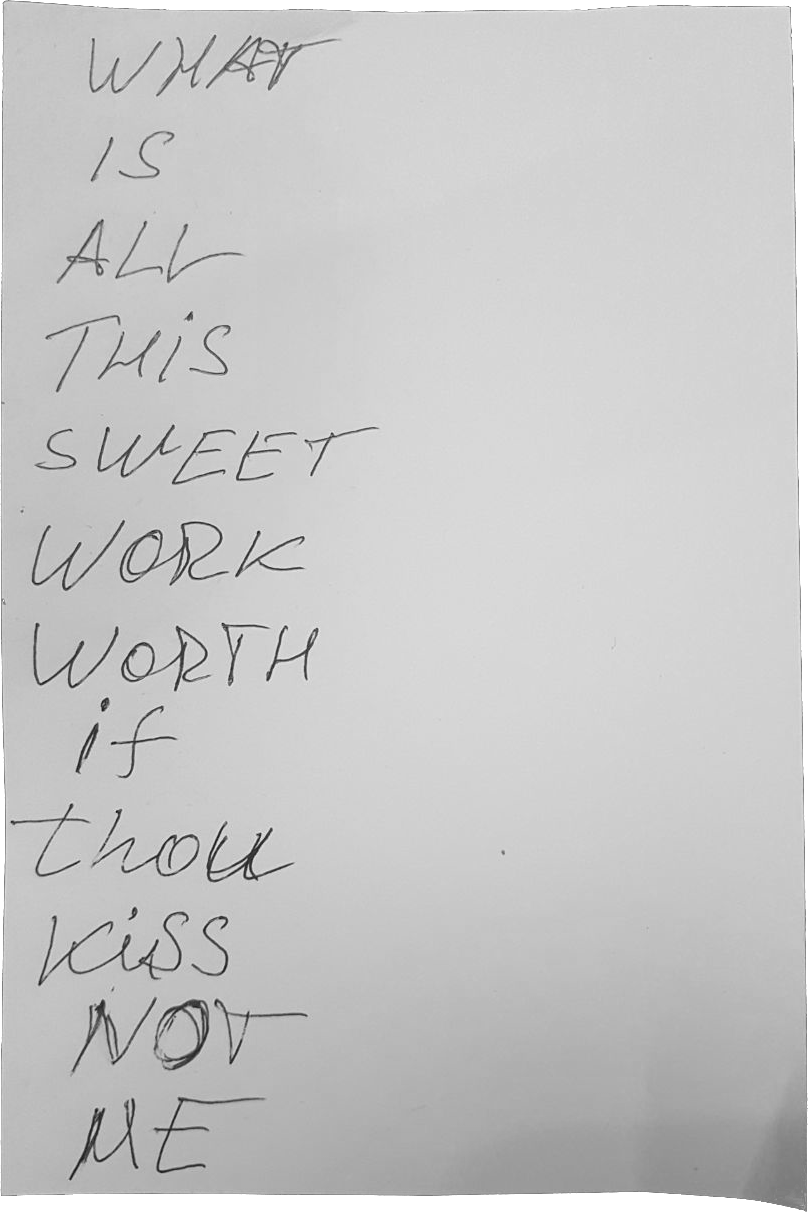 WHAT
IS
ALL
THiS
SWEET
WORK
WORTH
if
thou
KiSS
NOT
ME